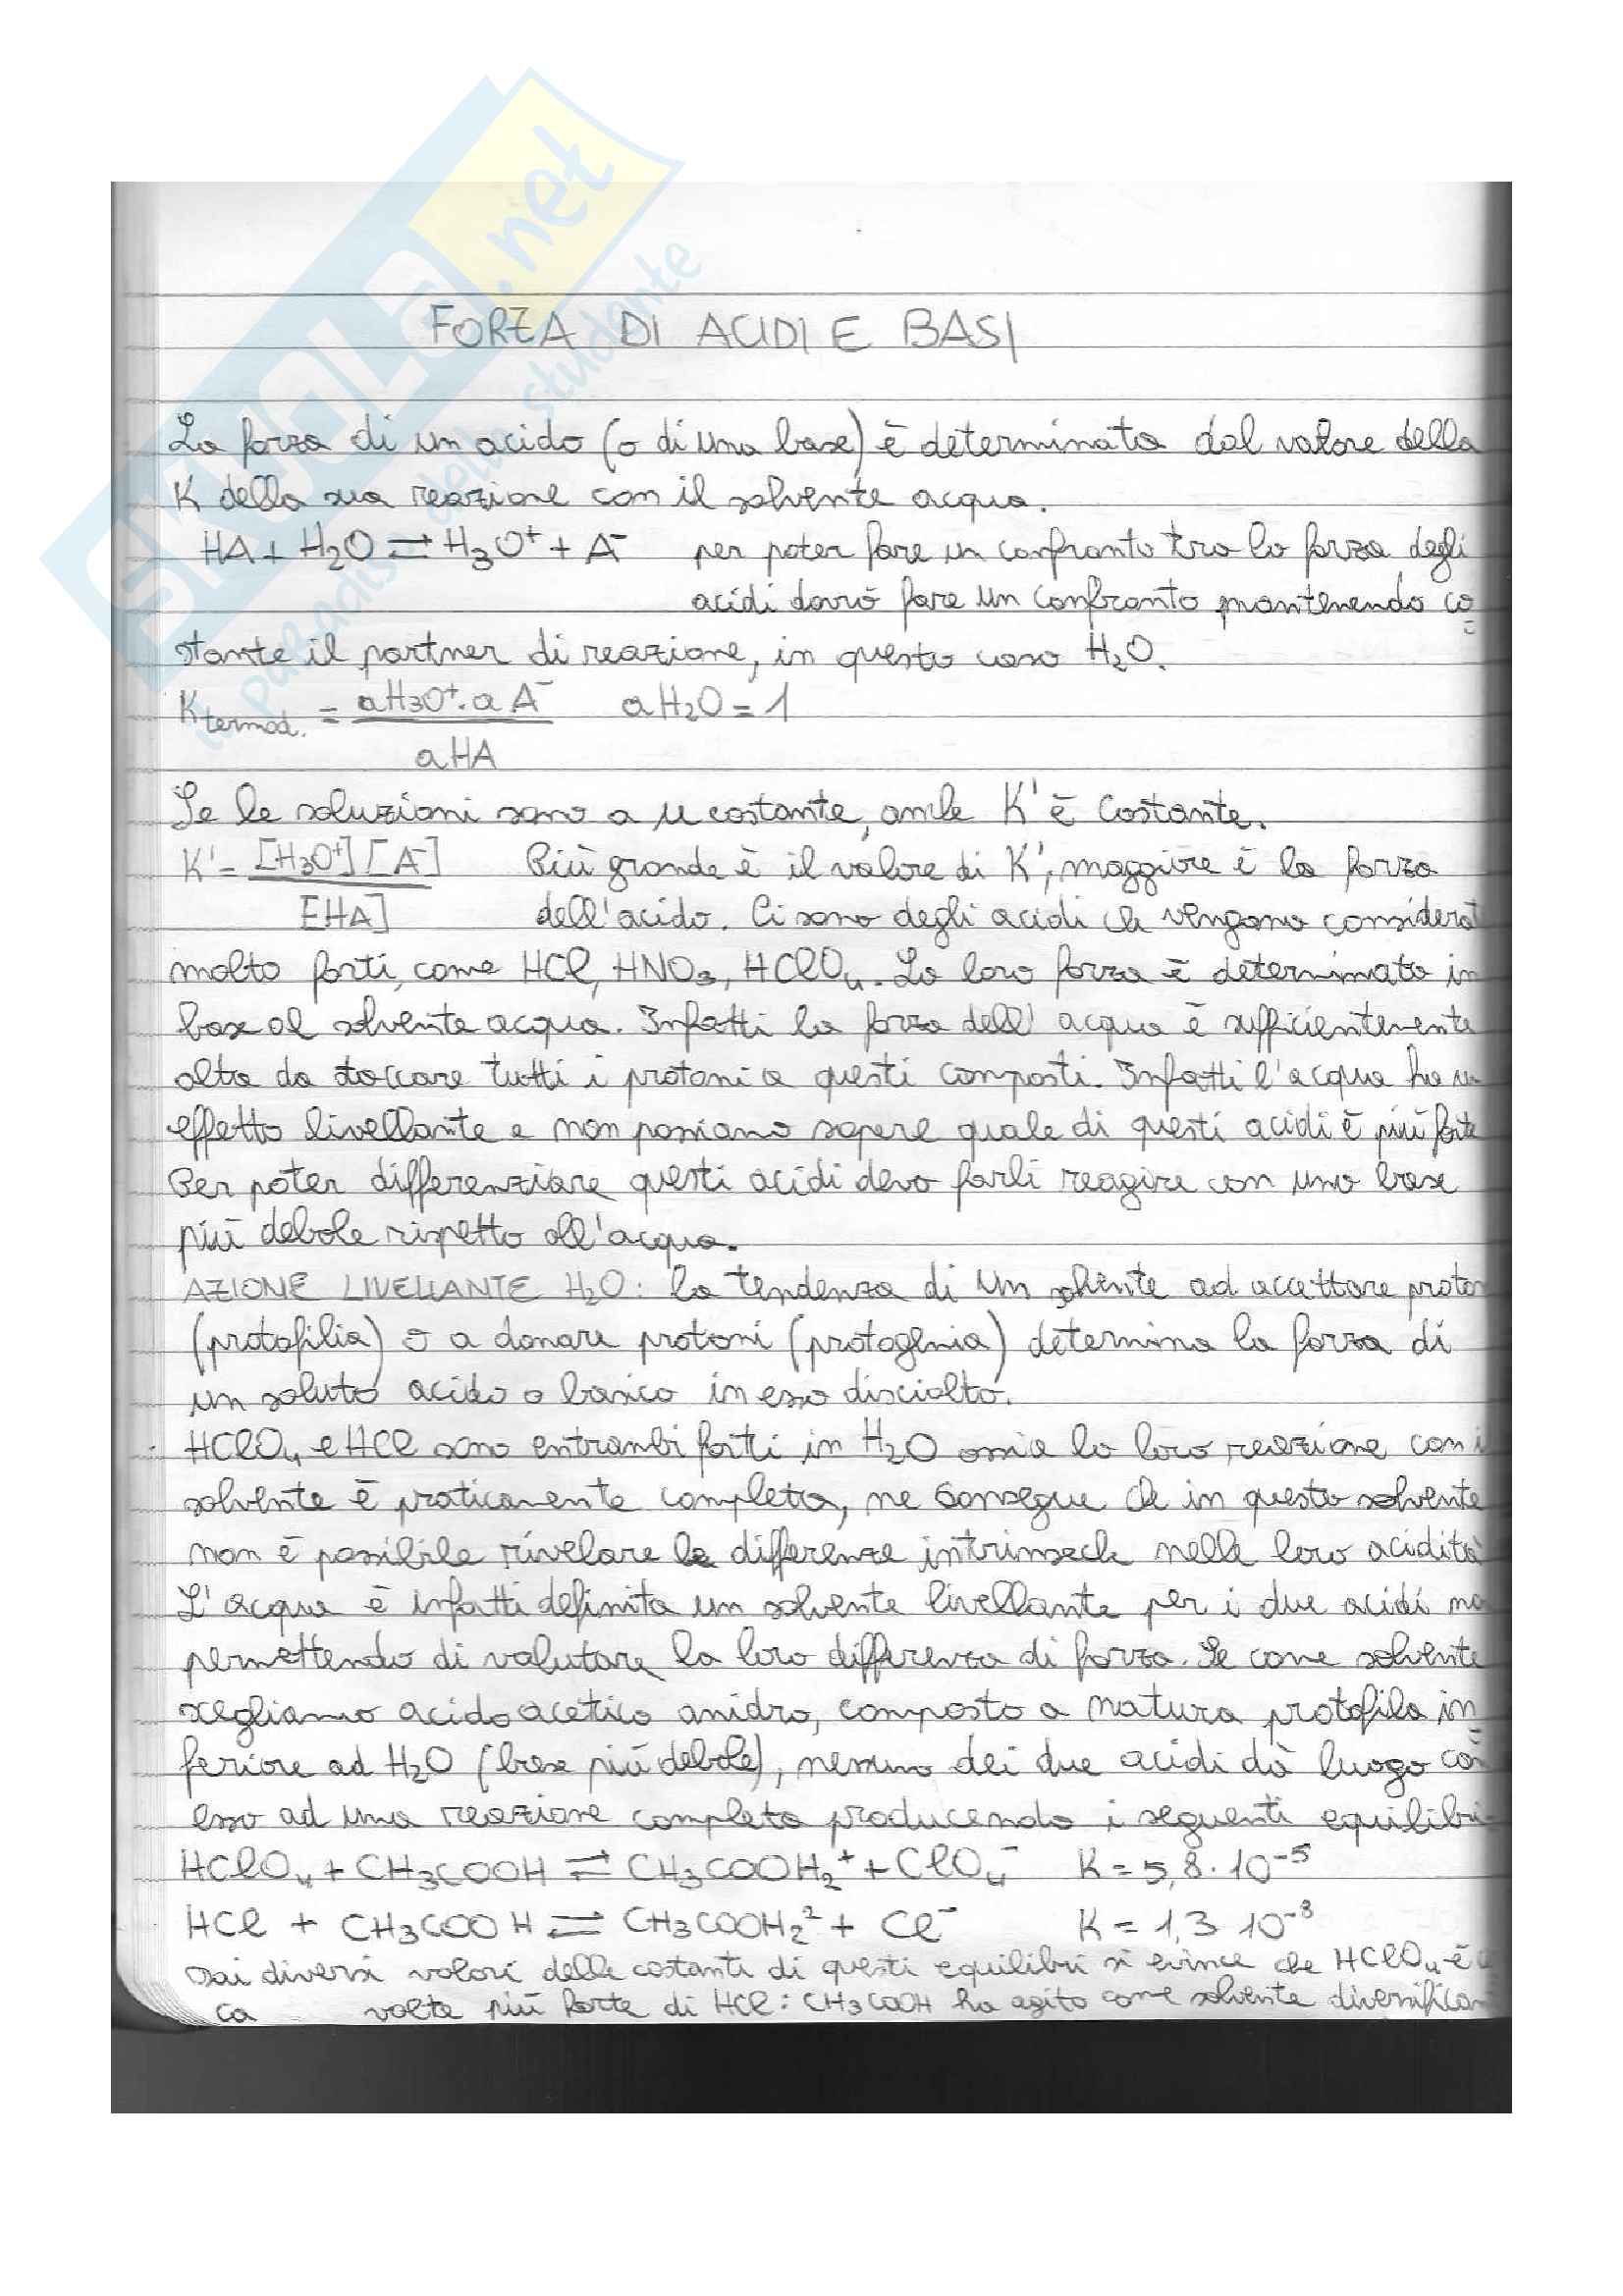 SKUOLA.net
il paradiso dello studente
FORZA DI ACIDI E BASI
La forza di un acido (o di una base) è determinata dal valore della
K della sua reazione con il solvente acqua.
HA + H2O ⇌ H3O+ + A- per poter fare un confronto tra la forza degli
acidi dovrò fare un confronto mantenendo co
stante il partner di reazione, in questo caso H2O.
K termod. = aH3O+ · a A- / aHA aH2O = 1
Se le soluzioni sono a μ costante, anche K' è costante.
K' = [H3O+][A-] / [HA] Più grande è il valore di K', maggiore è la forza
dell'acido. Ci sono degli acidi che vengono considerat
molto forti, come HCl, HNO3, HClO4. La loro forza è determinata in
base al solvente acqua. Infatti la forza dell'acqua è sufficientemente
alta da staccare tutti i protoni a questi composti. Infatti l'acqua ha un
effetto livellante e non possiamo sapere quale di questi acidi è più forte
Per poter differenziare questi acidi devo farli reagire con una base
più debole rispetto all'acqua.
AZIONE LIVELLANTE H2O: la tendenza di un solvente ad accettare proton
(protofilia) o a donare protoni (protogenia) determina la forza di
un soluto acido o basico in esso disciolto.
HClO4 e HCl sono entrambi forti in H2O ossia la loro reazione con i
solvente è praticamente completa, ne consegue che in questo solvente
non è possibile rivelare le differenze intrinseche nella loro acidità
L'acqua è infatti definita un solvente livellante per i due acidi no
permettendo di valutare la loro differenza di forza. Se come solvente
scegliamo acido acetico anidro, composto a natura protofila in
feriore ad H2O (base più debole), nessuno dei due acidi dà luogo con
esso ad una reazione completa producendo i seguenti equilibri
HClO4 + CH3COOH ⇌ CH3COOH2+ + ClO4- K = 5,8 · 10-5
HCl + CH3COOH ⇌ CH3COOH2 2 + Cl- K = 1,3 10-8
Dai diversi valori delle costanti di questi equilibri si evince che HClO4 è
ca volte più forte di HCl: CH3COOH ha agito come solvente diversifican